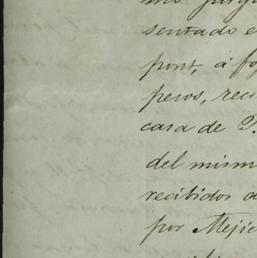 sentado e
pont, á fo
pesos, reci
casa de D.
del mism
recibidos a
por Mejic